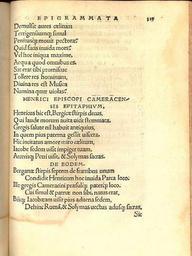 EPIGRAMMATA
Demulsit aures cælitum
Terrigenumque simul
Penitusque mouit pectora.
Quid facis inuida mors?
Vel hoc iniqua maxime,
Acqua quod omnibus es.
Sat erat tibi promiscue
Tollere res hominum,
Diuina res est Musica
Numina quur uiolas?
HENRICI EPISCOPI CAMERACEN-
SIS EPITAPHIVM.
Henricus hic est, Bergicæ stirpis decus,
Qui laude morum uicit ortus
Gregis salute nil habuit antiquius,
In quem pius paterna gessit uiscera.
Hic incitatus amore miro cælitum,
Iacobe sedem uisit impiger tuam,
Petri uisit, & Solymas sacras.
DE EODEM.
Bergana stirpis septem de fratribus unum
Condidit Henricum hoc inuida Parca loco.
Ille gregis Cameracini præsulque paterque
Cui simul & patriæ non sibi, natus erat,
Iacobum uisit pius
Romā, & Solymas sacras.
Sic